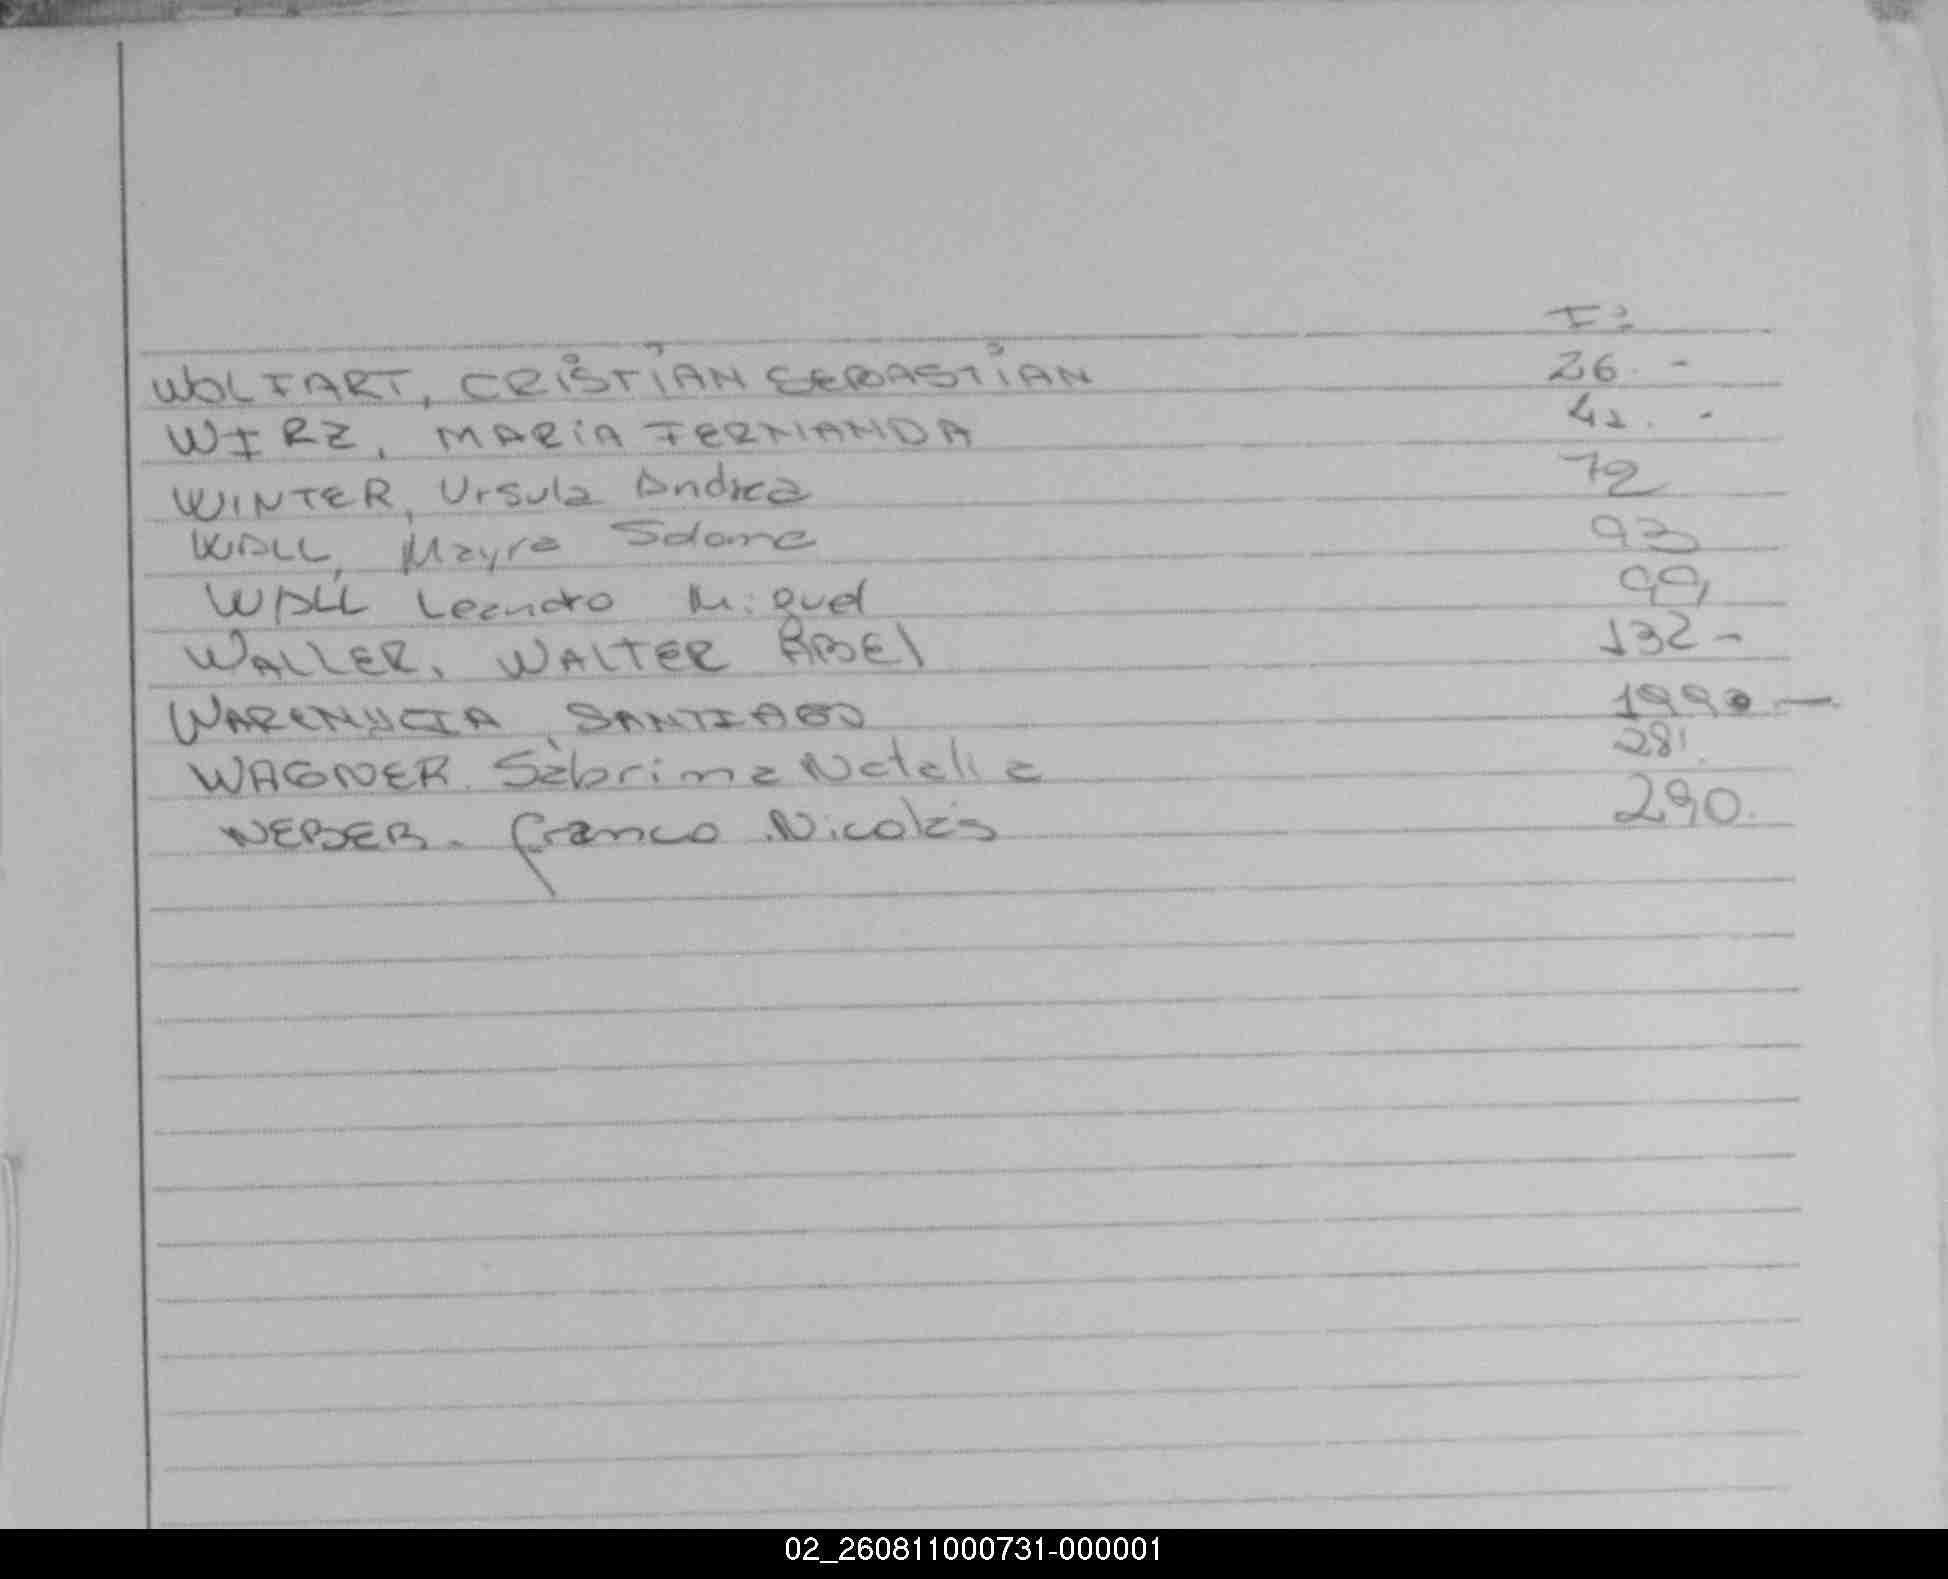 Fº
WOLFART, CRISTIAN SEBASTIAN 26. -
WIRZ, MARIA FERNANDA 42. -
WINTER, Ursula Andrea 72
WALL, Mayra Salome 93
WALL Leandro Miguel 99
WALLER, WALTER ABEL 132 -
SANTIAGO
WAGNER. Sabrina Natalia 281.
WEBER. Franco Nicolás 290.
02_260811000731-000001